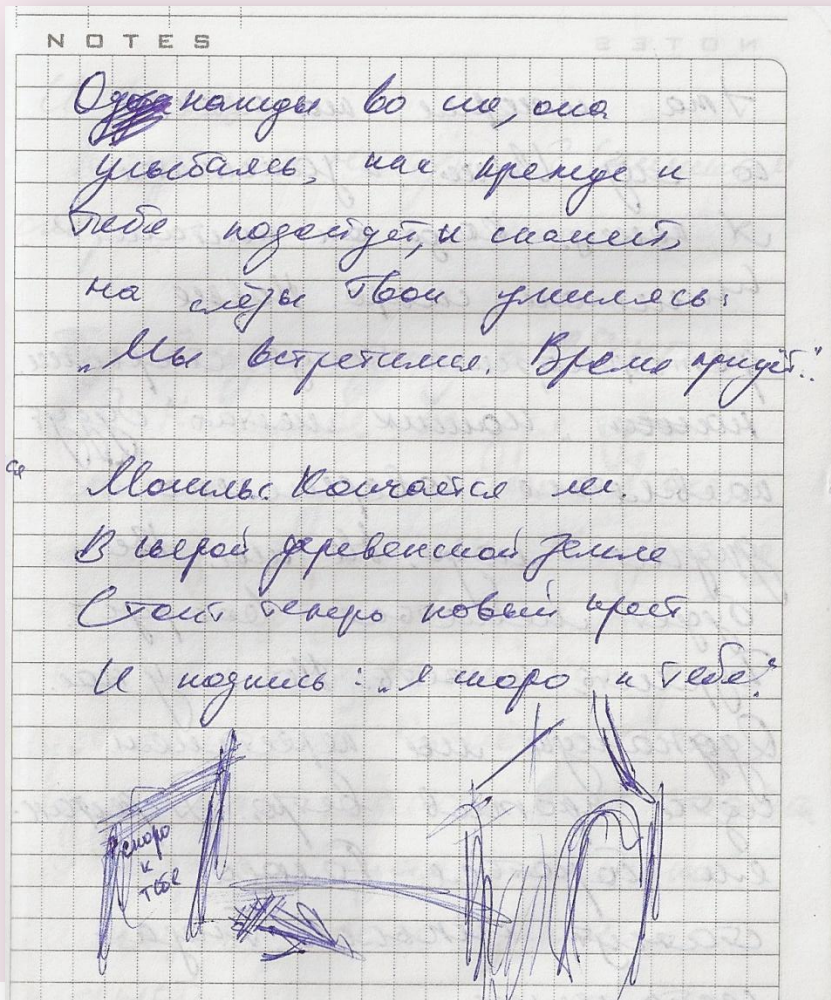 NOTES
Однажды во сне, она
улыбаясь, как прежде к
тебе подойдет, и скажет,
на слёзы твои умиляясь:
„Мы встретимся. Время придёт."
ся
Могилы. Кончается лес.
В сырой деревенской земле
Стоит теперь новый крест
И подпись: „Я скоро к тебе."
скоро
к
тебе